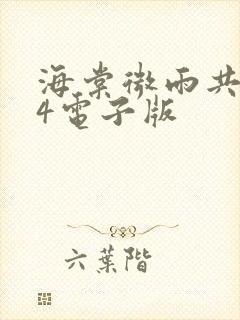 海棠微雨共
4電子版
六葉階